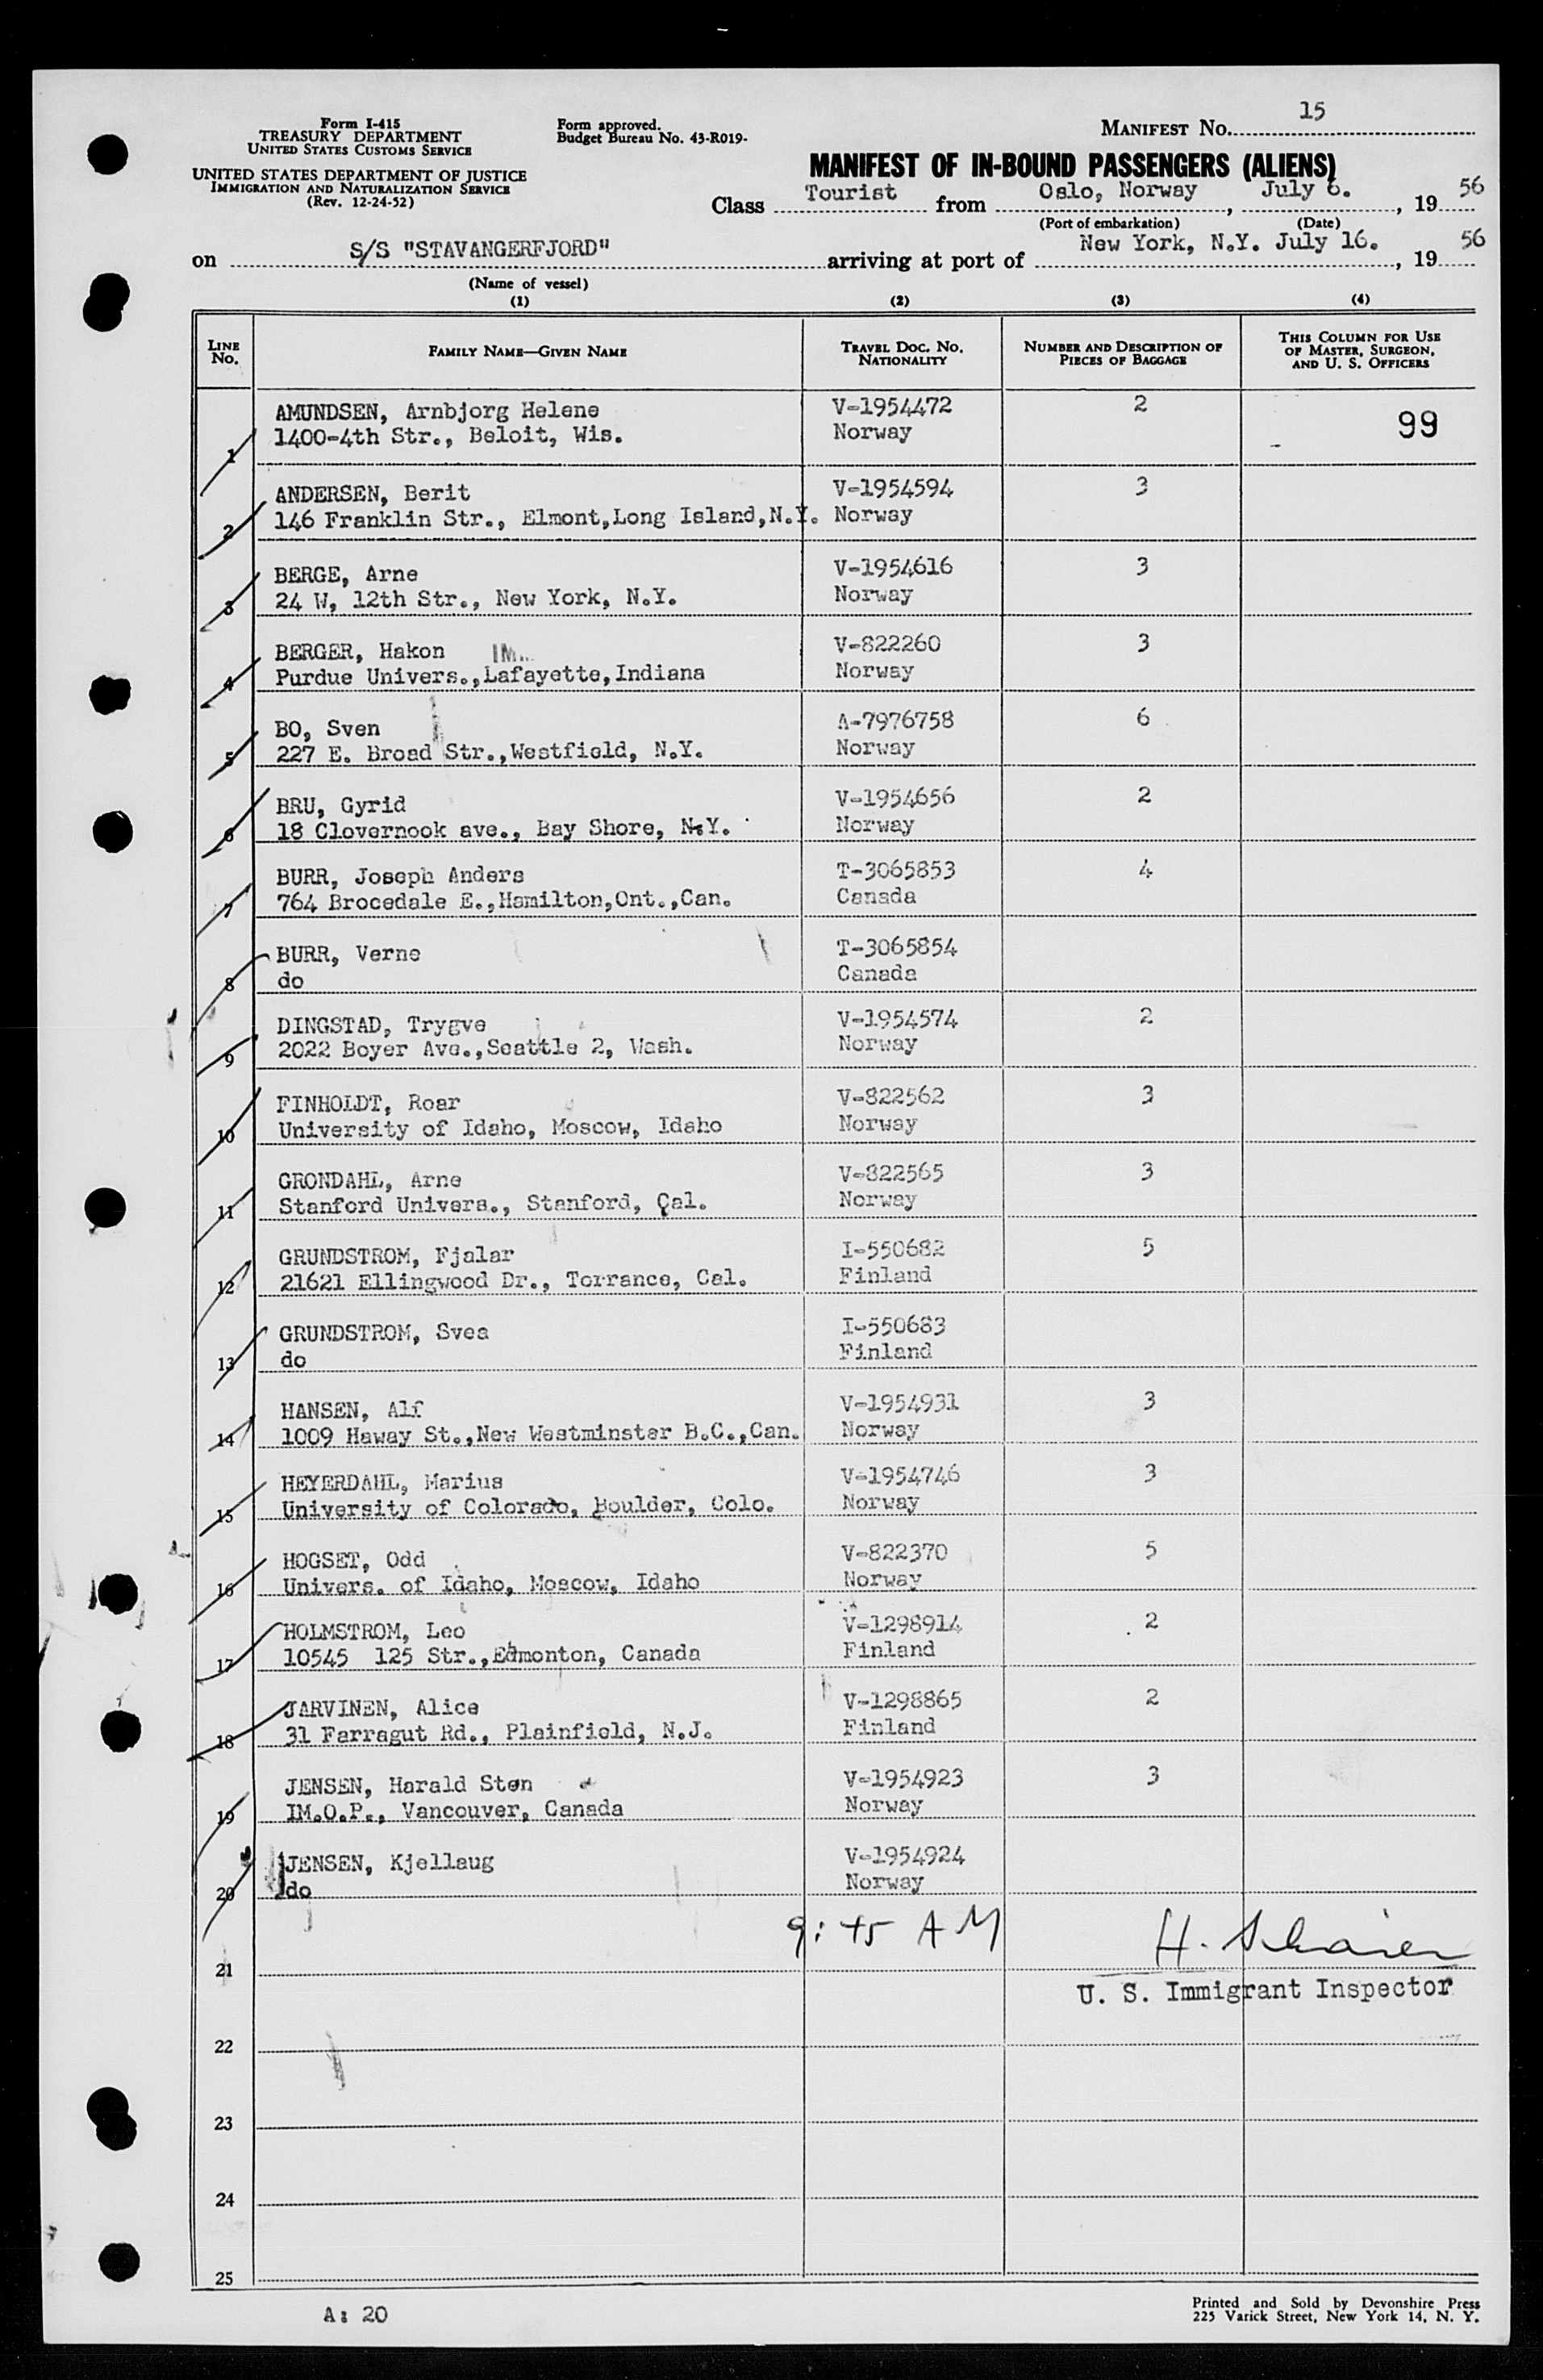 Form I-415
TREASURY DEPARTMENT
UNITED STATES CUSTOMS SERVICE
UNITED STATES DEPARTMENT OF JUSTICE
IMMIGRATION AND NATURALIZATION SERVICE
(Rev. 12-24-52)
Form approved.
Budget Bureau No. 43-R019-
MANIFEST NO. 15
MANIFEST OF IN-BOUND PASSENGERS (ALIENS)
Class Tourist from Oslo, Norway, July 6., 19 56
(Port of embarkation) (Date)
on S/S "STAVANGERFJORD" arriving at port of New York, N.Y. July 16., 19 56
(Name of vessel)
(1) (2) (3) (4)
LINE NO. FAMILY NAME—GIVEN NAME TRAVEL DOC. NO. NATIONALITY NUMBER AND DESCRIPTION OF PIECES OF BAGGAGE THIS COLUMN FOR USE OF MASTER, SURGEON, AND U. S. OFFICERS
1 AMUNDSEN, Arnbjorg Helene V-1954472 2 99
1400-4th Str., Beloit, Wis. Norway
2 ANDERSEN, Berit V-1954594 3
146 Franklin Str., Elmont,Long Island,N.Y. Norway
3 BERGE, Arne V-1954616 3
24 W, 12th Str., New York, N.Y. Norway
4 BERGER, Hakon IM. V-822260 3
Purdue Univers.,Lafayette,Indiana Norway
5 BO, Sven A-7976758 6
227 E. Broad Str.,Westfield, N.Y. Norway
6 BRU, Gyrid V-1954656 2
18 Clovernook ave., Bay Shore, N.Y. Norway
7 BURR, Joseph Anders T-3065853 4
764 Brocedale E.,Hamilton,Ont.,Can. Canada
8 BURR, Verne T-3065854
do Canada
9 DINGSTAD, Trygve V-1954574 2
2022 Boyer Ave.,Seattle 2, Wash. Norway
10 FINHOLDT, Roar V-822562 3
University of Idaho, Moscow, Idaho Norway
11 GRONDAHL, Arne V-822565 3
Stanford Univers., Stanford, Cal. Norway
12 GRUNDSTROM, Fjalar I-550682 5
21621 Ellingwood Dr., Torrance, Cal. Finland
13 GRUNDSTROM, Svea I-550683
do Finland
14 HANSEN, Alf V-1954931 3
1009 Haway St.,New Westminster B.C.,Can. Norway
15 HEYERDAHL, Marius V-1954746 3
University of Colorado, Boulder, Colo. Norway
16 HOGSET, Odd V-822370 5
Univers. of Idaho, Moscow, Idaho Norway
17 HOLMSTROM, Leo V-1298914 2
10545 125 Str.,Edmonton, Canada Finland
18 JARVINEN, Alice V-1298865 2
31 Farragut Rd., Plainfield, N.J. Finland
19 JENSEN, Harald Sten V-1954923 3
IM.O.P., Vancouver, Canada Norway
20 JENSEN, Kjellaug V-1954924
do Norway
9:45 AM H.
21
U. S. Immigrant Inspector
22
23
24
25
A: 20
Printed and Sold by Devonshire Press
225 Varick Street, New York 14, N. Y.